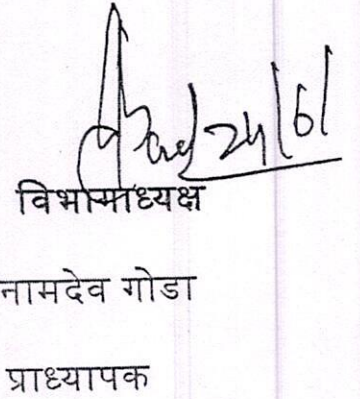 24/6/
विभागाध्यक्ष
नामदेव गोडा
प्राध्यापक